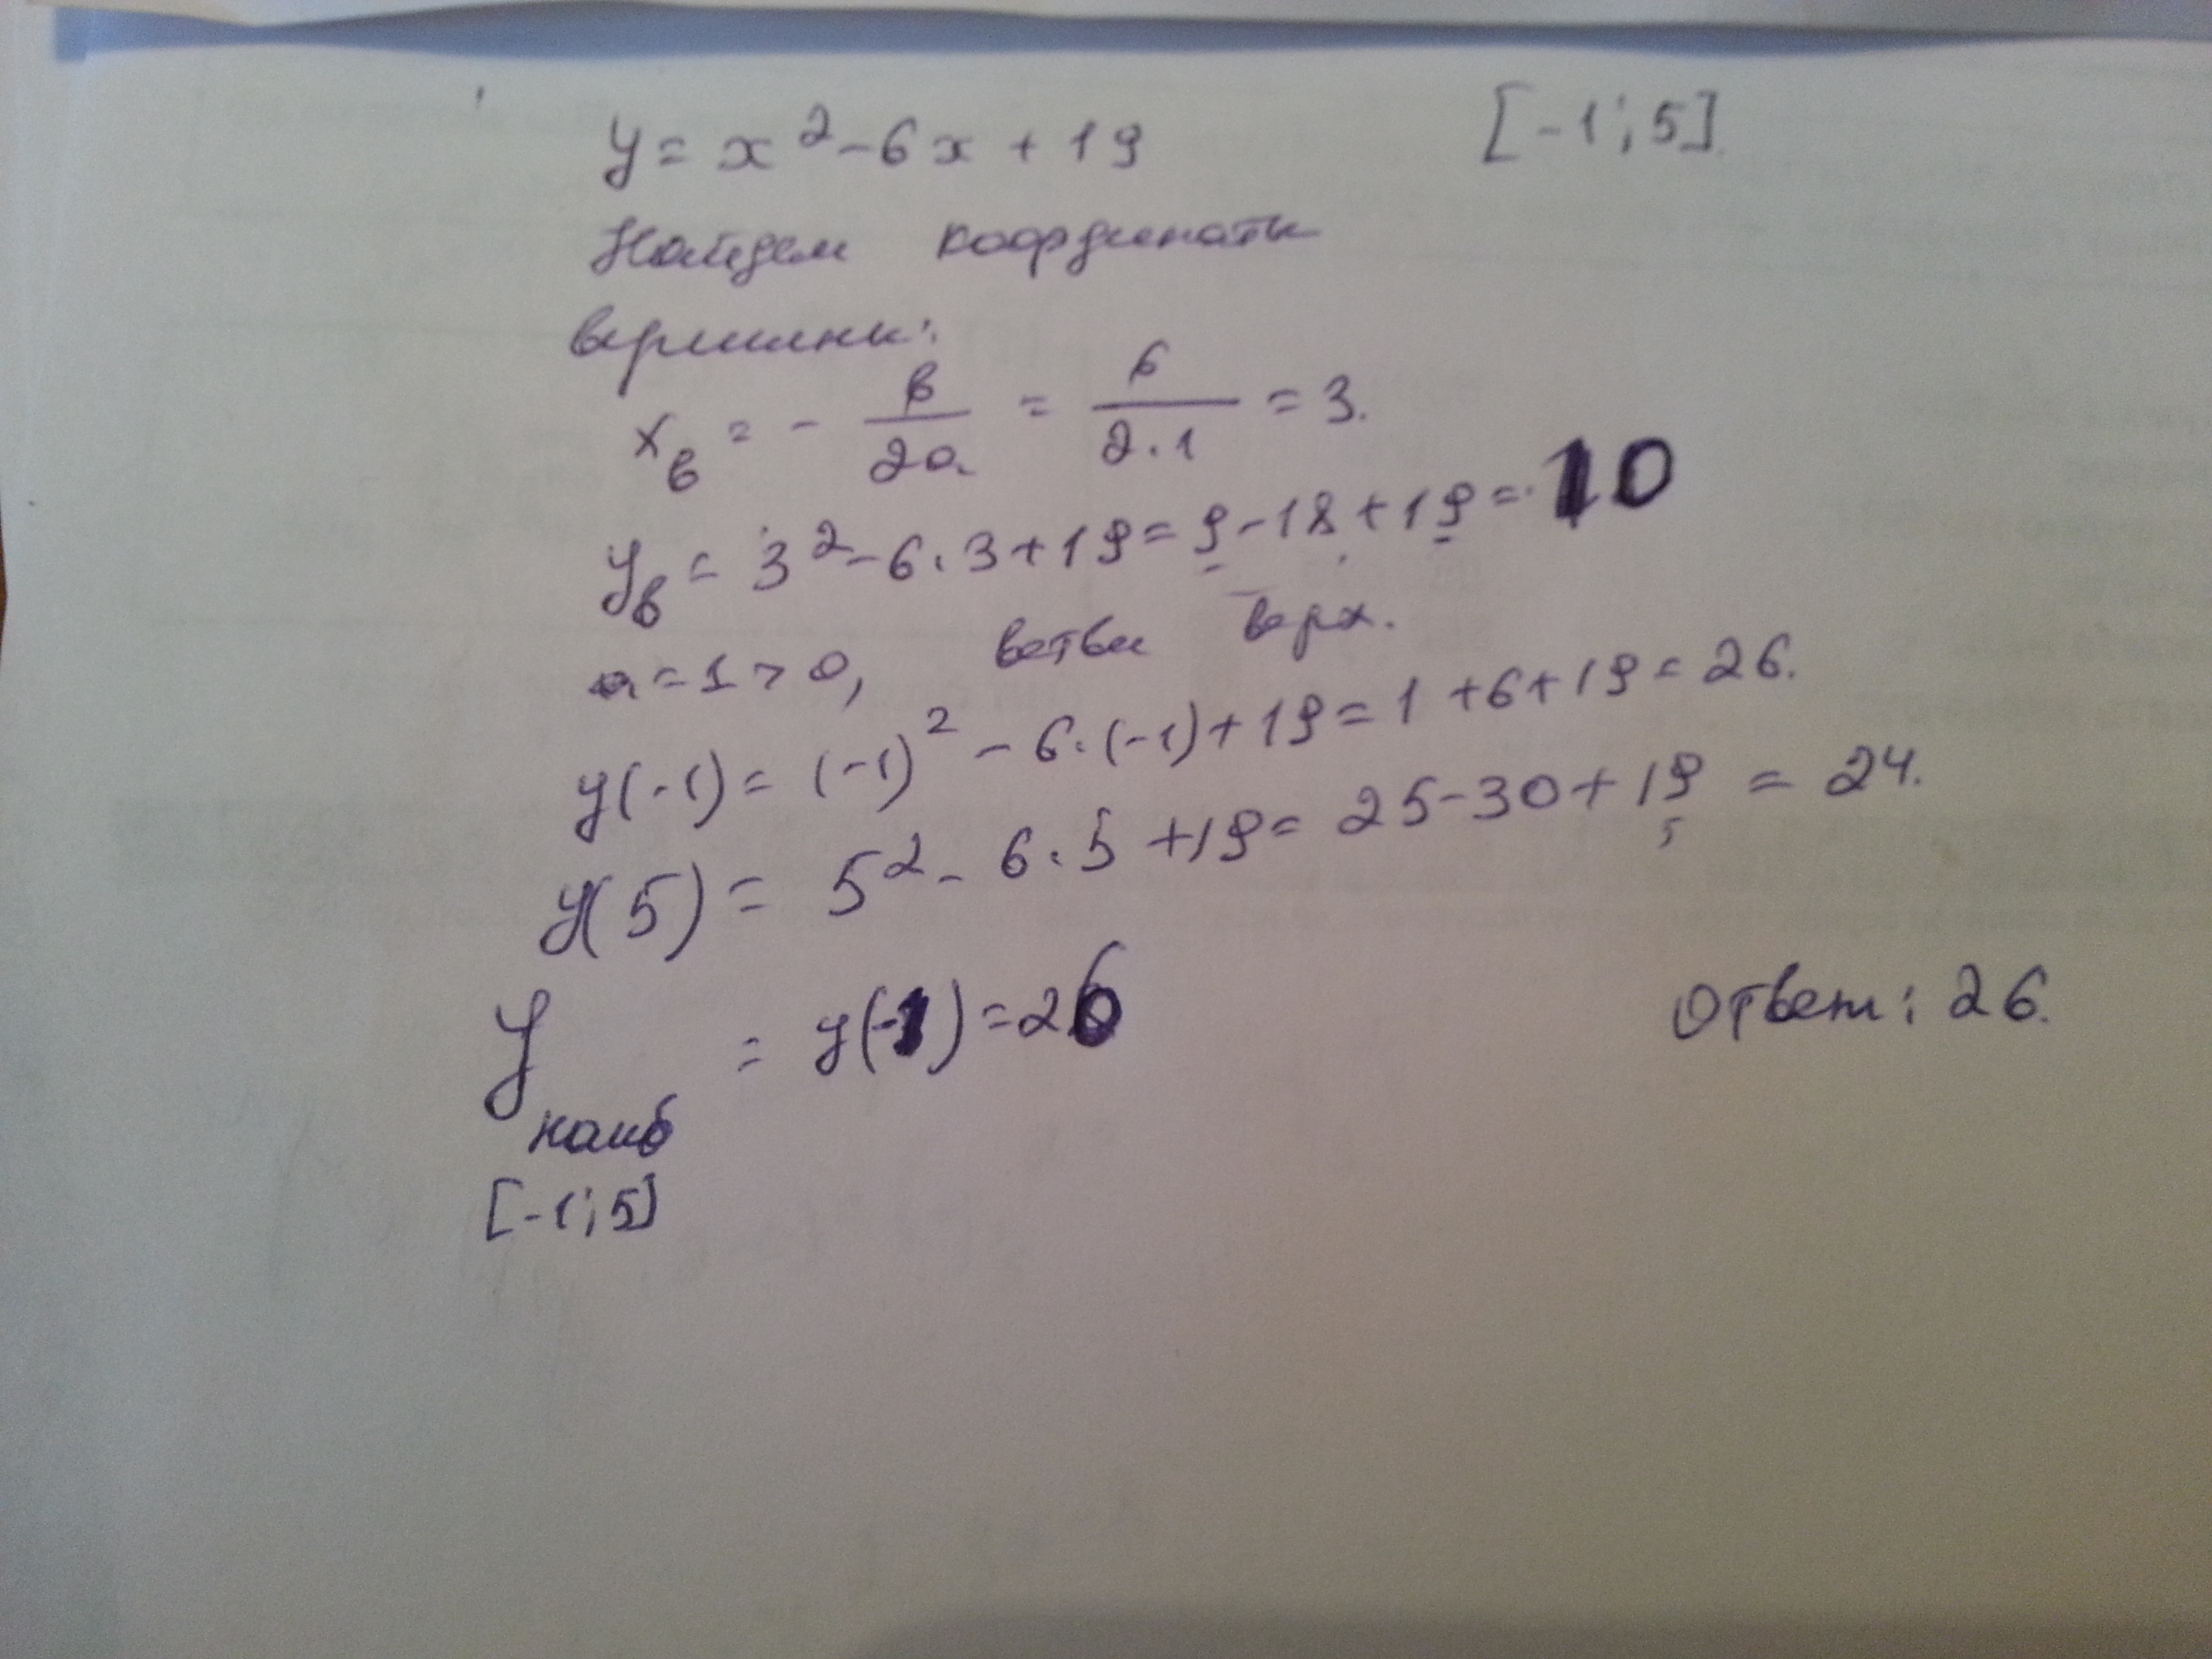 y = x² - 6x + 19 [-1; 5]
Найдем координаты
вершины:
xв = - в/2a = 6/2·1 = 3.
yв = 3² - 6·3 + 19 = 9 - 18 + 19 = 10
a = 1 > 0, ветви верх.
y(-1) = (-1)² - 6·(-1) + 19 = 1 + 6 + 19 = 26.
y(5) = 5² - 6·5 + 19 = 25 - 30 + 19 = 24.
y наиб = y(-1) = 26 Ответ: 26.
[-1; 5]